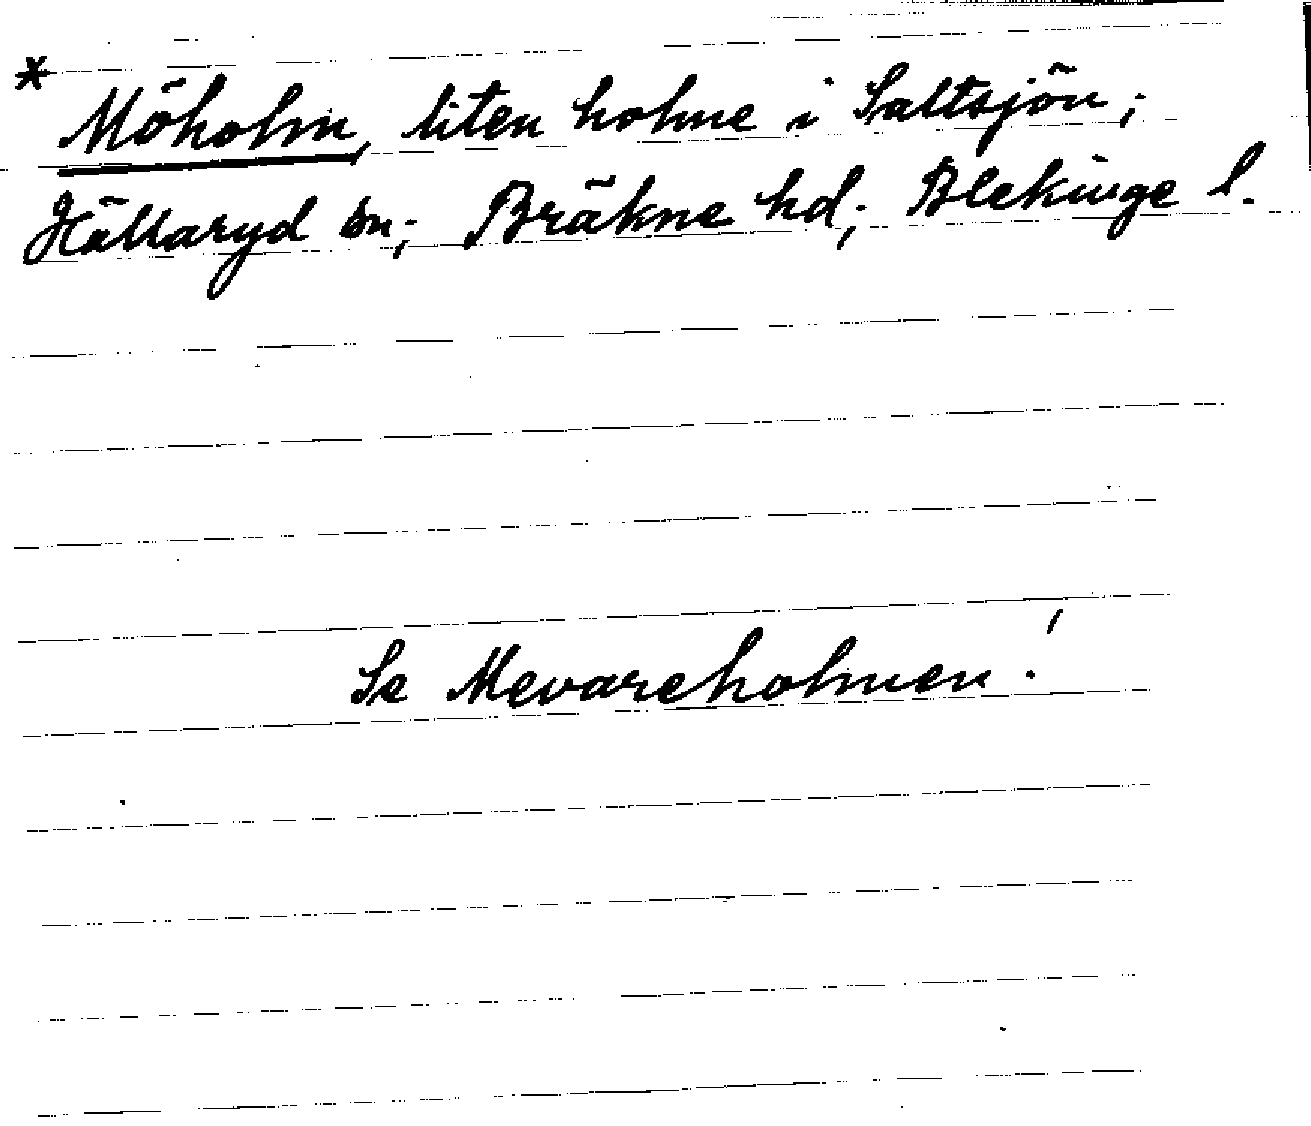 * Möholm, liten holme i Saltsjön;
Hällaryd sn; Bräkne hd; Blekinge l.
Se Mevareholmen!